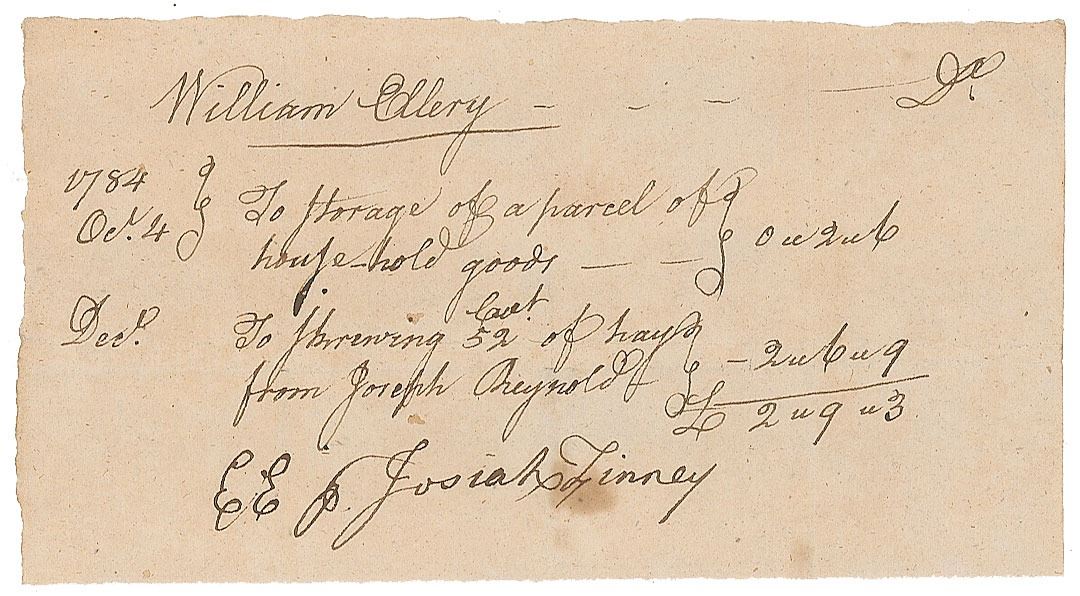 William Ellery - - - Dr
1784
Oct. 4 To storage of a parcel of
house-hold goods — — 0 " 2 " 6
Decr. To skrewing 52 Cwt of hay
from Joseph Reynolds - 2 " 6 " 9
£ 2 " 9 " 3
EE p. Josiah Finney